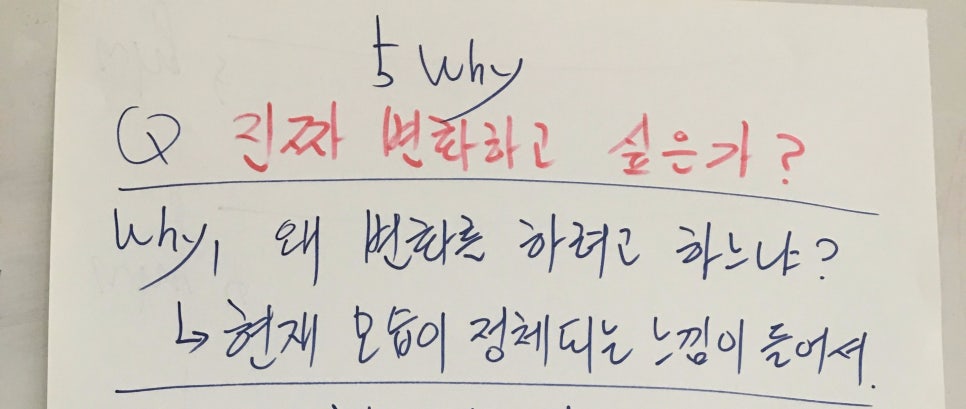 5 Why
Q 진짜 변화하고 싶은가?
Why, 왜 변화를 하려고 하느냐?
↳ 현재 모습이 정체되는 느낌이 들어서.